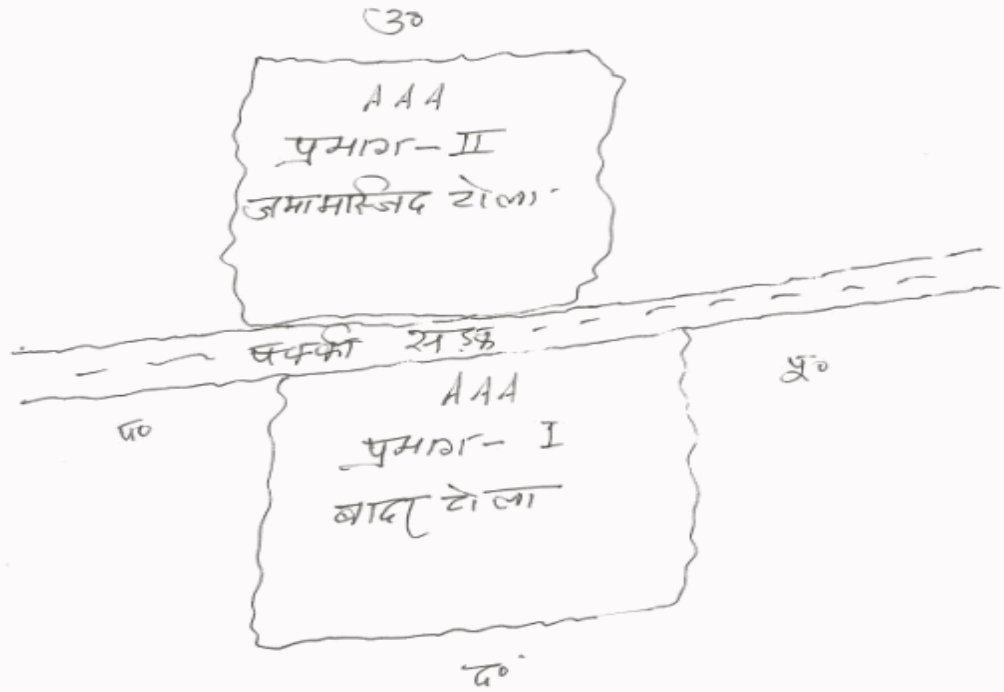 उ०
AAA
प्रभाग - II
जमामस्जिद टोला
पक्की सड़क
पू०
प०
AAA
प्रभाग - I
बादर टोला
द०